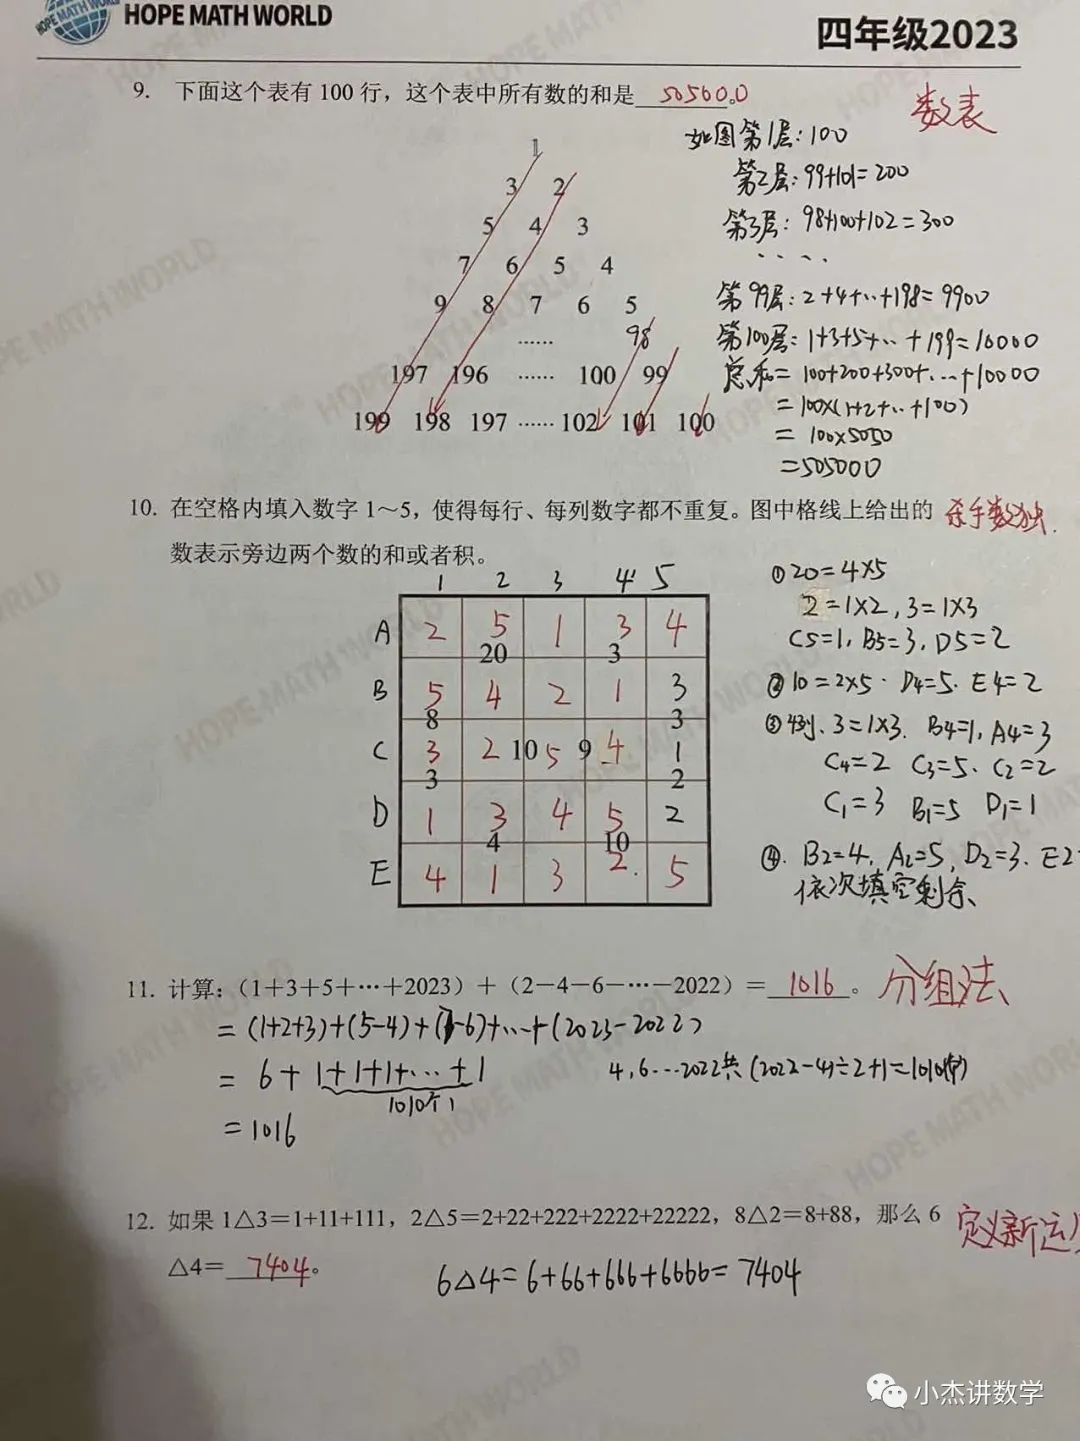 HOPE MATH WORLD
HOPE MATH WORLD
四年级2023
9. 下面这个表有 100 行，这个表中所有数的和是 505000。
数表
1
3 2
5 4 3
7 6 5 4
9 8 7 6 5
…… 98
197 196 …… 100 99
199 198 197 …… 102 101 100
如图第1层:100
第2层:99+101=200
第3层:98+100+102=300
····
第99层:2+4+…+198=9900
第100层:1+3+5+…+199=10000
总和=100+200+300+…+10000
=100×(1+2+…+100)
=100×5050
=505000
10. 在空格内填入数字 1～5，使得每行、每列数字都不重复。图中格线上给出的
数表示旁边两个数的和或者积。
杀手数独.
1 2 3 4 5
A 2 5 1 3 4
20 3
B 5 4 2 1 3
8 3
C 3 2 10 5 9 4 1
3 2
D 1 3 4 5 2
4 10
E 4 1 3 2. 5
①20=4×5
2=1×2,3=1×3
C5=1,B5=3,D5=2
②10=2×5·D4=5·E4=2
③4列、3=1×3. B4=1,A4=3
C4=2 C3=5·C2=2
C1=3 B1=5 D1=1
④.B2=4,A2=5,D2=3.E2=
依次填空剩余、
11. 计算:（1+3+5+…+2023）+（2－4－6－…－2022）= 1016 。
分组法
=(1+2+3)+(5-4)+(7-6)+…+(2023-2022)
=6+1+1+1+…+1
1010个1
4,6…2022共(2022-4)÷2+1=1010(个)
=1016
12. 如果 1△3=1+11+111，2△5=2+22+222+2222+22222，8△2=8+88，那么 6
△4= 7404 。
定义新运算
6△4=6+66+666+6666=7404
小杰讲数学
HOPE MATH WORLD
HOPE MATH WORLD
HOPE MATH WORLD
HOPE MATH WORLD
HOPE MATH WORLD